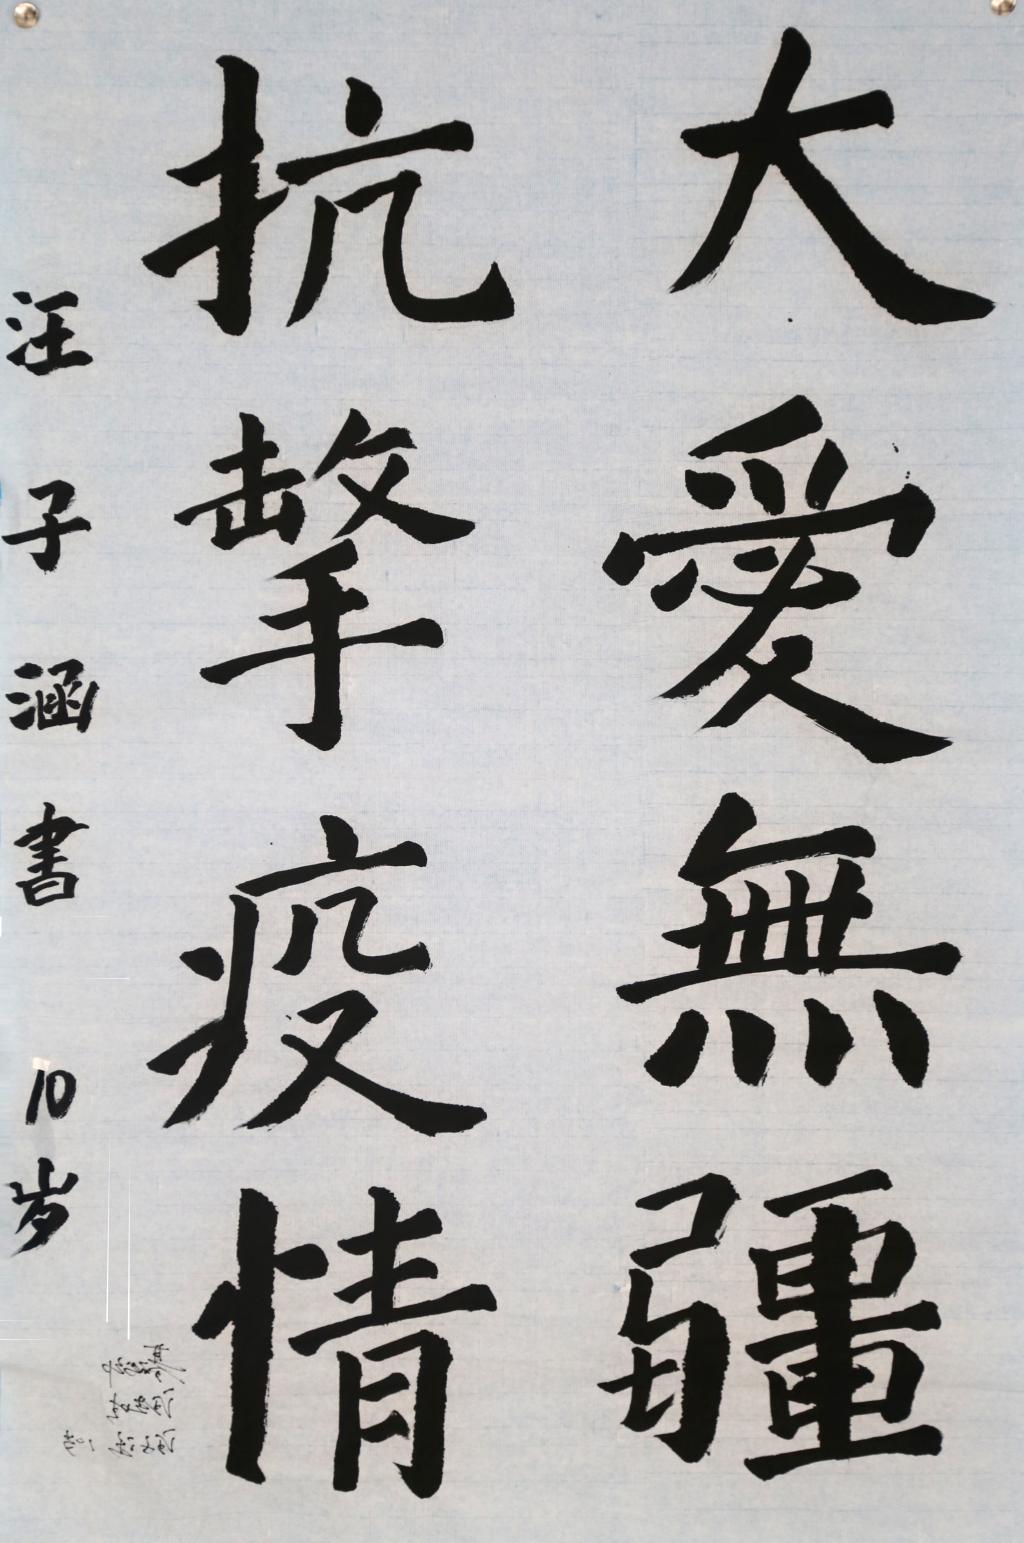 大愛無疆
抗擊疫情
汪子涵書 10岁